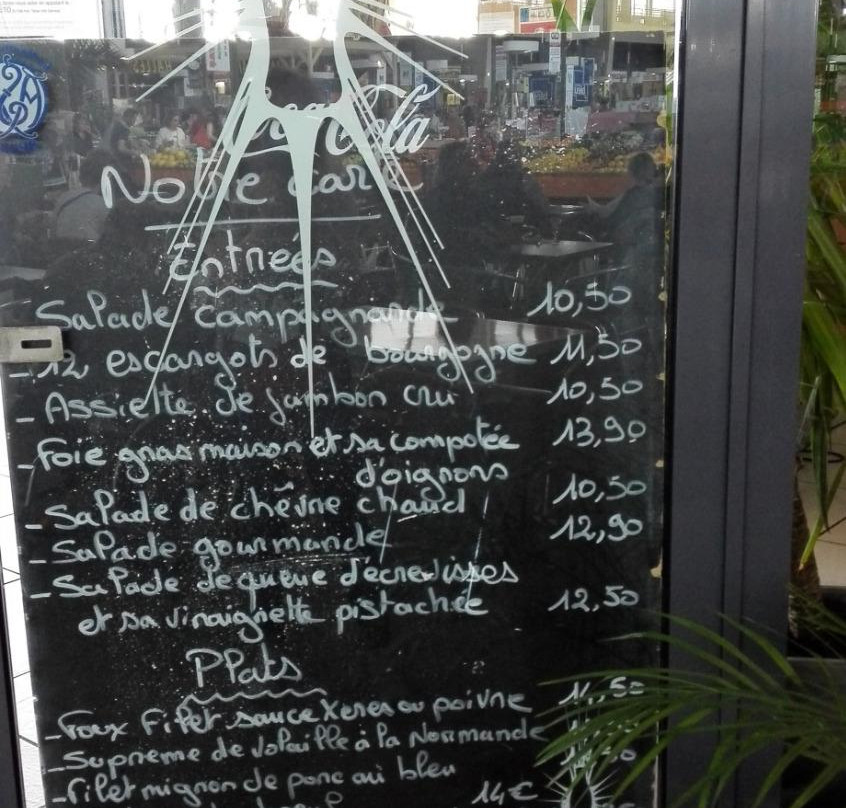 Coca-Cola
Notre carte
Entrées
Salade campagnarde 10,50
- 12 escargots de bourgogne 11,50
- Assiette de jambon cru 10,50
- Foie gras maison et sa compotée 13,90
d'oignons
- Salade de chèvre chaud 10,50
- Salade gourmande 12,90
- Salade de queue d'écrevisses
et sa vinaigrette pistachée 12,50
Plats
- Faux Filet sauce Xeres ou poivre
- Supreme de volaille à la Normande
- Filet mignon de porc au bleu
14€